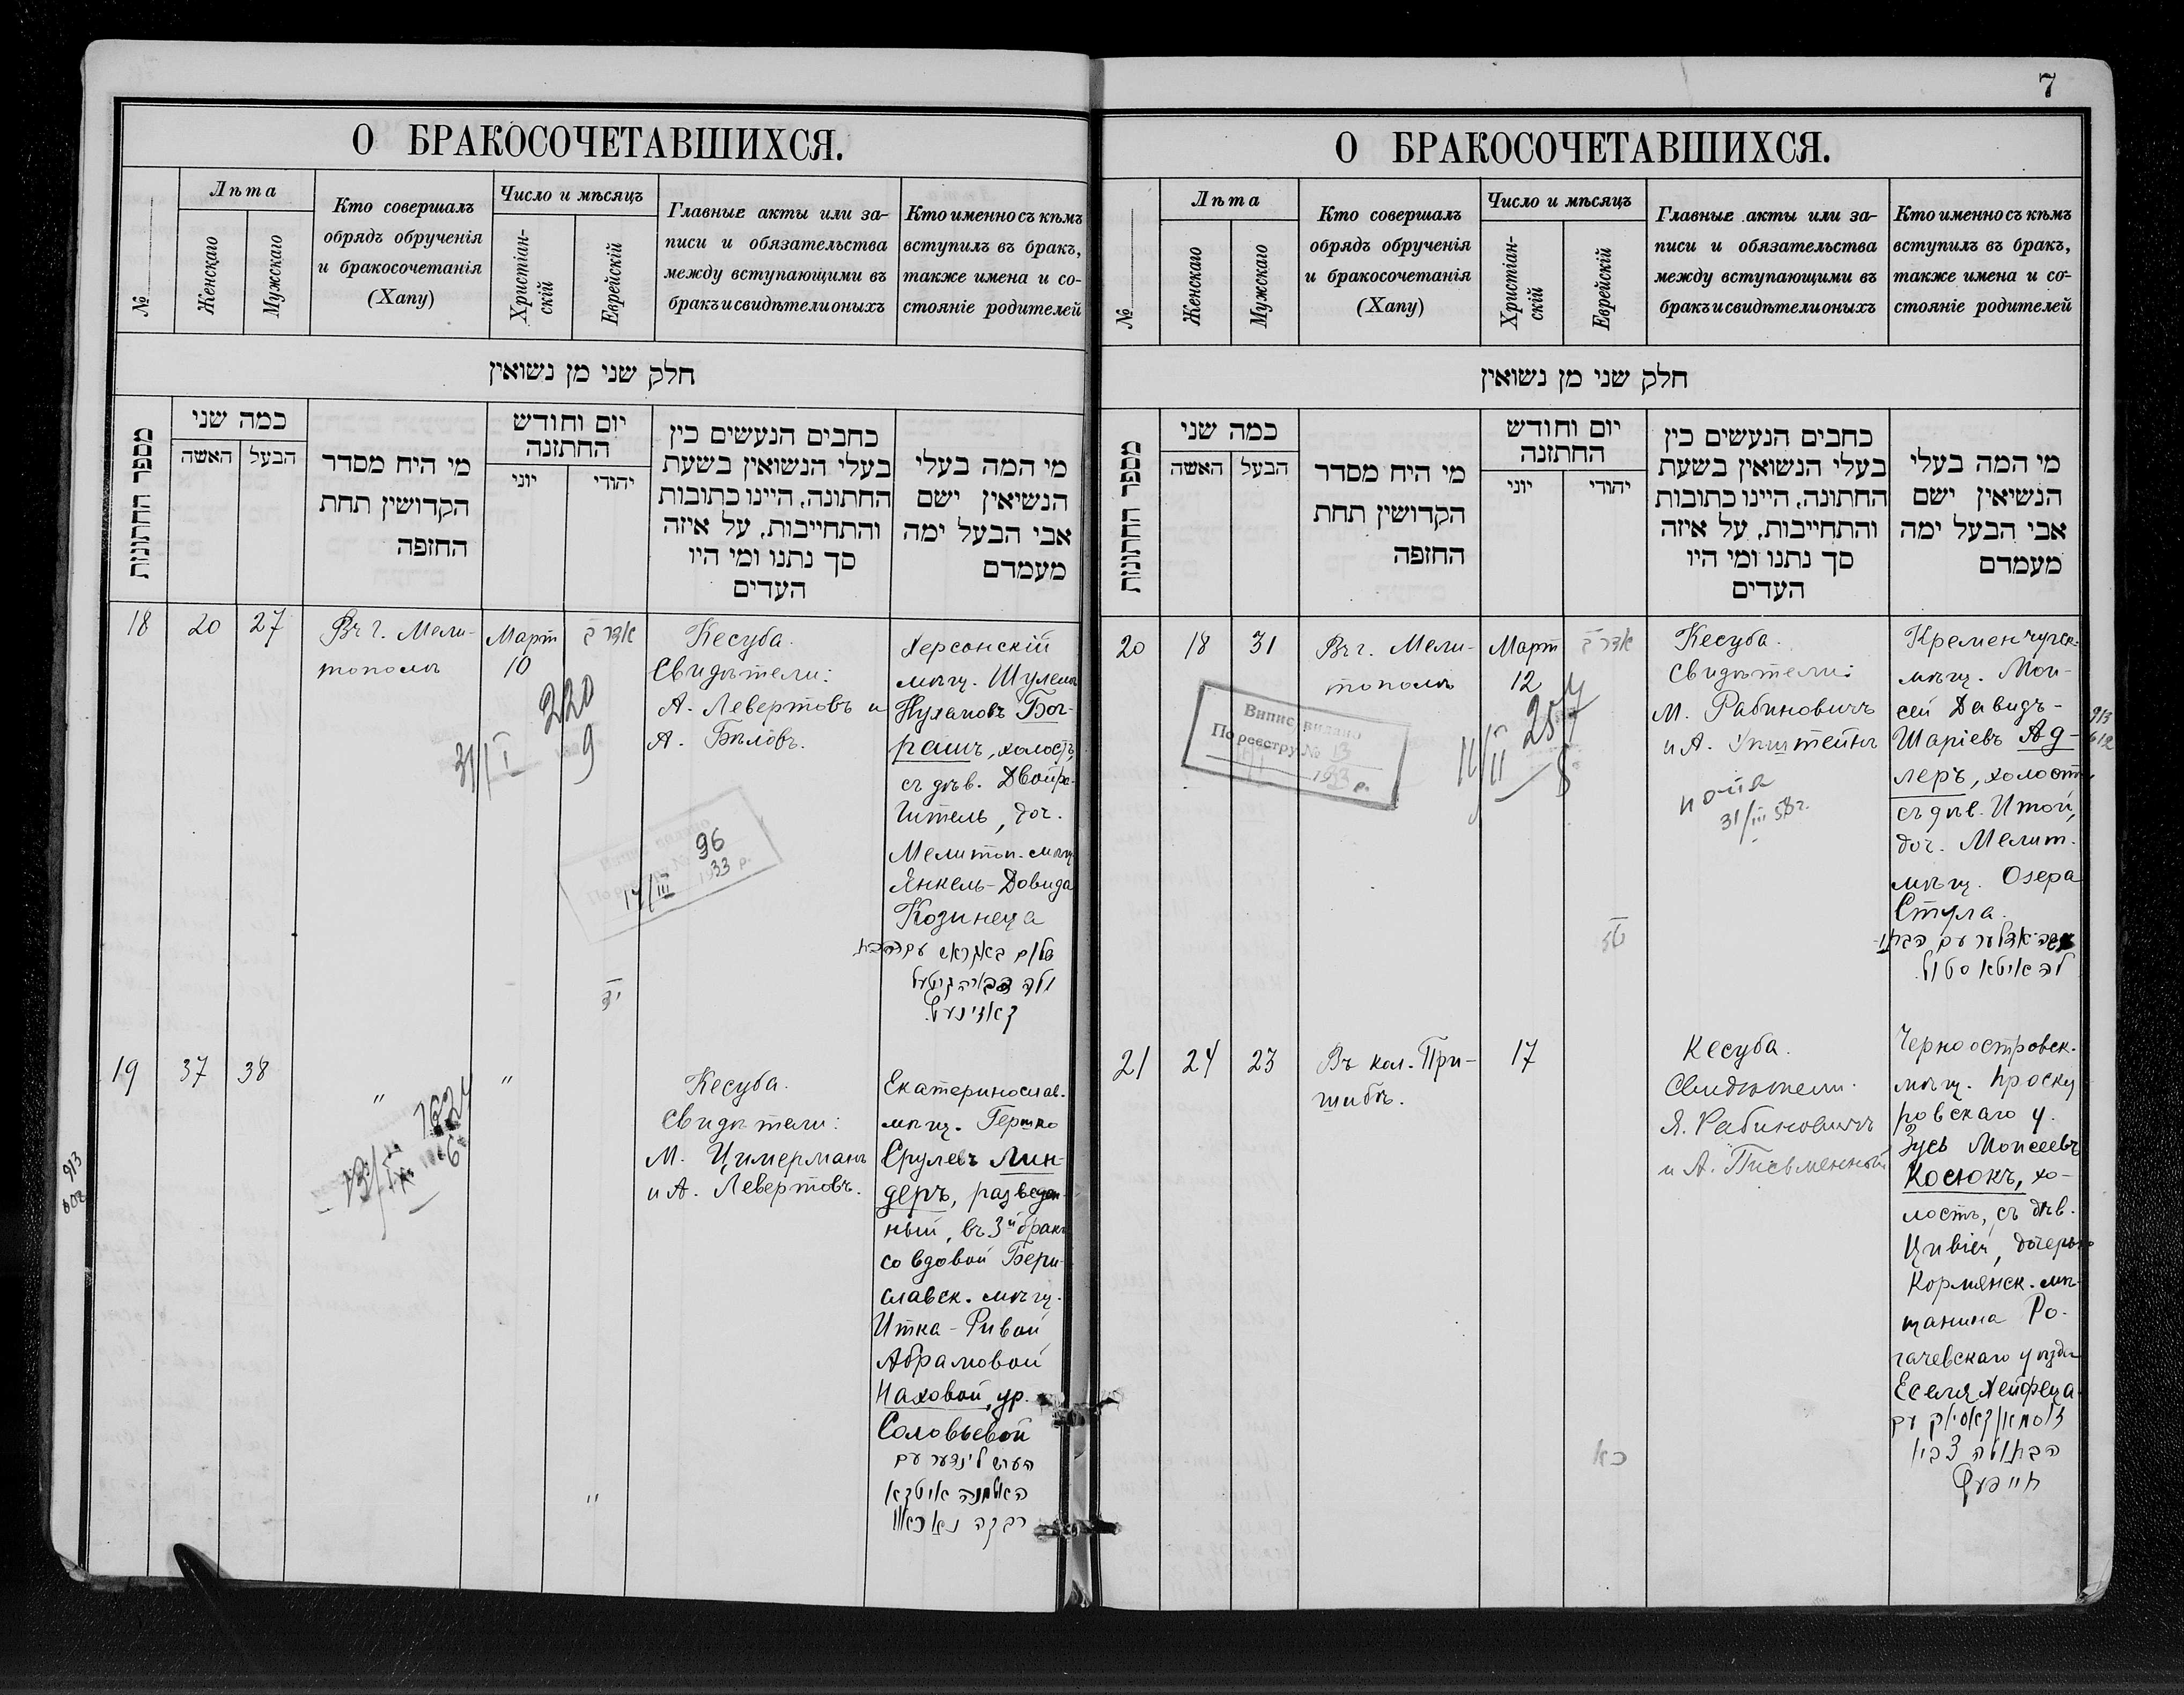 О БРАКОСОЧЕТАВШИХСЯ.
№
Лѣта
Женскаго
Мужскаго
Кто совершалъ
обрядъ обрученія
и бракосочетанія
(Хапу)
Число и мѣсяцъ
Христіан-
скій
Еврейскій
Главные акты или за-
писи и обязательства
между вступающими въ
бракъ и свидѣтели оныхъ
Кто именно съ кѣмъ
вступилъ въ бракъ,
также имена и со-
стояніе родителей
חלק שני מן נשואין
מספר החתונות
כמה שני
האשה
הבעל
מי היח מסדר
הקדושין תחת
החזפה
יום וחודש
החתזנה
יוני
יהודי
כחבים הנעשים כין
בעלי הנשואין בשעת
החתונה, היינו כתובות
והתחייבות, על איזה
סך נתנו ומי היו
העדים
מי המה בעלי
הנשיאין ישם
אבי הבעל ימה
מעמדם
18
20
27
Въ г. Мели-
тополѣ
Март
10
אדר ב
יד
Кесуба.
Свидѣтели:
А. Левертовъ и
А. Бѣловъ.
Херсонскій
мѣщ. Шулемъ
Нухимовъ Бог-
рашъ, холостъ,
съ дѣв. Двойра-
Гитель, доч.
Мелитоп. мѣщ.
Янкель-Довида
Козинеца
220
9
31/I
96
17/III 1933 р.
19
37
38
"
"
"
Кесуба.
Свидѣтели:
М. Цимерманъ
и А. Левертовъ.
Екатеринослав.
мѣщ. Гершко
Срулевъ Лин-
деръ, разведен-
ный, въ 3й бракъ
со вдовой Бери-
славск. мѣщ.
Итка-Ривой
Абрамовой
Наховой, ур.
Соловьевой
הערש לינדער עם
האלמנה איטקא
רבקה נאכאוו
913
608
7
О БРАКОСОЧЕТАВШИХСЯ.
№
Лѣта
Женскаго
Мужскаго
Кто совершалъ
обрядъ обрученія
и бракосочетанія
(Хапу)
Число и мѣсяцъ
Христіан-
скій
Еврейскій
Главные акты или за-
писи и обязательства
между вступающими въ
бракъ и свидѣтели оныхъ
Кто именно съ кѣмъ
вступилъ въ бракъ,
также имена и со-
стояніе родителей
חלק שני מן נשואין
מספר החתונות
כמה שני
האשה
הבעל
מי היח מסדר
הקדושין תחת
החזפה
יום וחודש
החתזנה
יוני
יהודי
כחבים הנעשים כין
בעלי הנשואין בשעת
החתונה, היינו כתובות
והתחייבות, על איזה
סך נתנו ומי היו
העדים
מי המה בעלי
הנשיאין ישם
אבי הבעל ימה
מעמדם
20
18
31
Въ г. Мели-
тополѣ
Март
12
אדר ב
טז
Кесуба.
Свидѣтели:
М. Рабиновичъ
и А. Эпштейнъ
31/III 58 г.
Кременчугск.
мѣщ. Мои-
сей Давидъ-
Шаріевъ Ад-
леръ, холостъ,
съ дѣв. Итой,
доч. Мелит.
мѣщ. Озера
Стула.
913
612
Випис видано
По реєстру № 13
1933 р.
257
11/II
21
24
23
Въ кол. При-
шибѣ.
17
כא
Кесуба.
Свидѣтели.
Я. Рабиновичъ
и А. Письменный
Черноостровск.
мѣщ. Проску
ровскаго у.
Зусь Моисеевъ
Косюкъ, хо-
лостъ, съ дѣв.
Цивіей, дочерью
Кормянск. мѣ-
щанина Ро-
гачевскаго уѣзда
Еселя Хейфеца
הבתולה צביא
חייפעץ